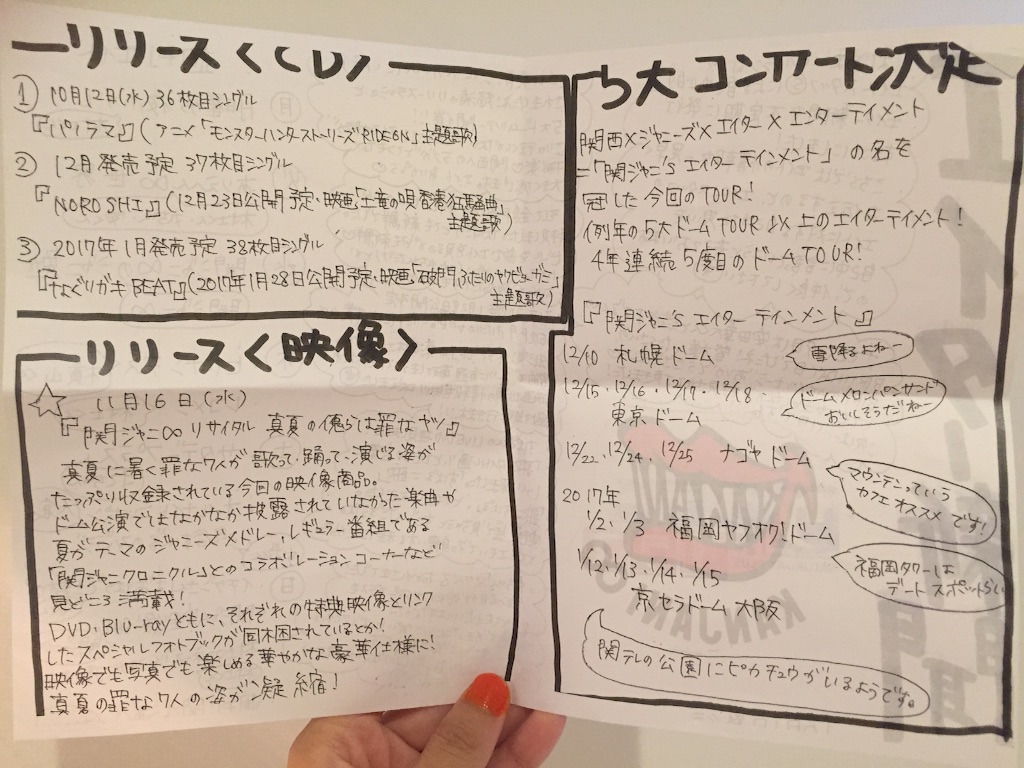 リリース〈CD〉
① 10月12日(水) 36枚目シングル
『パノラマ』(アニメ「モンスターハンターストーリーズRIDE ON」主題歌)
② 12月発売予定 37枚目シングル
『NOROSHI』(12月23日公開予定・映画「土竜の唄 香港狂騒曲」
主題歌)
③ 2017年1月発売予定 38枚目シングル
『なぐりガキBEAT』(2017年1月28日公開予定・映画「破門 ふたりのヤクビョーガミ」
主題歌)
リリース〈映像〉
☆ 11月16日(水)
『関ジャニ∞リサイタル 真夏の俺らは罪なヤツ』
真夏に暑く罪な7人が歌って、踊って、演じる姿が
たっぷり収録されている今回の映像商品。
ドーム公演ではなかなか披露されていなかった楽曲や
夏がテーマのジャニーズメドレー、レギュラー番組である
「関ジャニクロニクル」とのコラボレーションコーナーなど
見どころ満載!
DVD・Blu-rayともに、それぞれの特典映像とリンク
したスペシャルフォトブックが同梱されているとか!
映像でも写真でも楽しめる華やかな豪華仕様に!
真夏の罪な7人の姿が凝縮!
5大コンサート決定
関西×ジャニーズ×エイター×エンターテイメント
=「関ジャニ'sエイターテインメント」の名を
冠した今回のTOUR!
例年の5大ドームTOUR以上のエイターテイメント!
4年連続5度目のドームTOUR!
『関ジャニ'sエイターテインメント』
12/10 札幌ドーム
雪降るよねー
12/15・12/16・12/17・12/18
東京ドーム
ドームメロンパンサンド
おいしそうだねー
12/22、12/24、12/25 ナゴヤドーム
マウンテンっていう
カフェオススメです!
2017年
1/2、1/3 福岡ヤフオク!ドーム
福岡タワーは
デートスポットらしい
1/12・1/13・1/14・1/15
京セラドーム大阪
関テレの公園にピカチュウがいるようです。